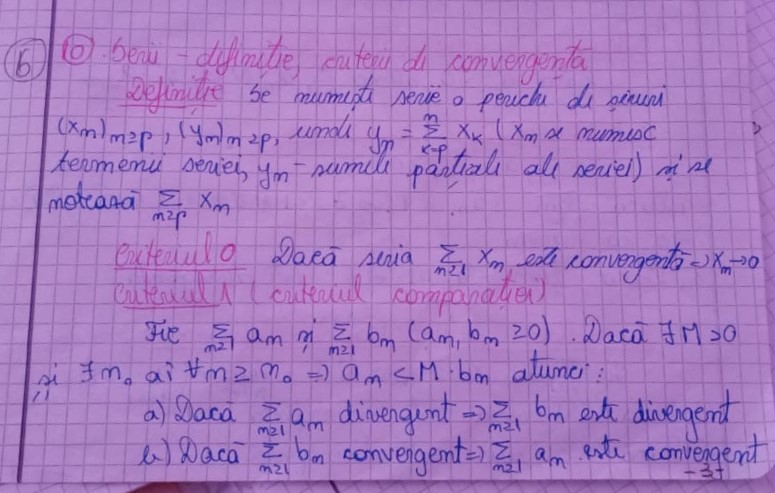 6 10 Serii - definiție, criterii de convergență
Definiție Se numește serie o pereche de șiruri
(xn)n≥p, (yn)n≥p, unde yn = Σ_{k=p}^{n} xk (xn se numesc
termenii seriei, yn - sumele parțiale ale seriei) și se
notează Σ_{n≥p} xn
Criteriul 0 Dacă seria Σ_{n≥1} xn este convergentă => xn→0
Criteriul 1 (criteriul comparației)
Fie Σ_{n≥1} an și Σ_{n≥1} bn (an, bn ≥0). Dacă ∃ M>0
și ∃ n₀ aî ∀n≥n₀ => an < M·bn atunci:
a) Dacă Σ_{n≥1} an divergent => Σ_{n≥1} bn este divergent
b) Dacă Σ_{n≥1} bn convergent => Σ_{n≥1} an este convergent